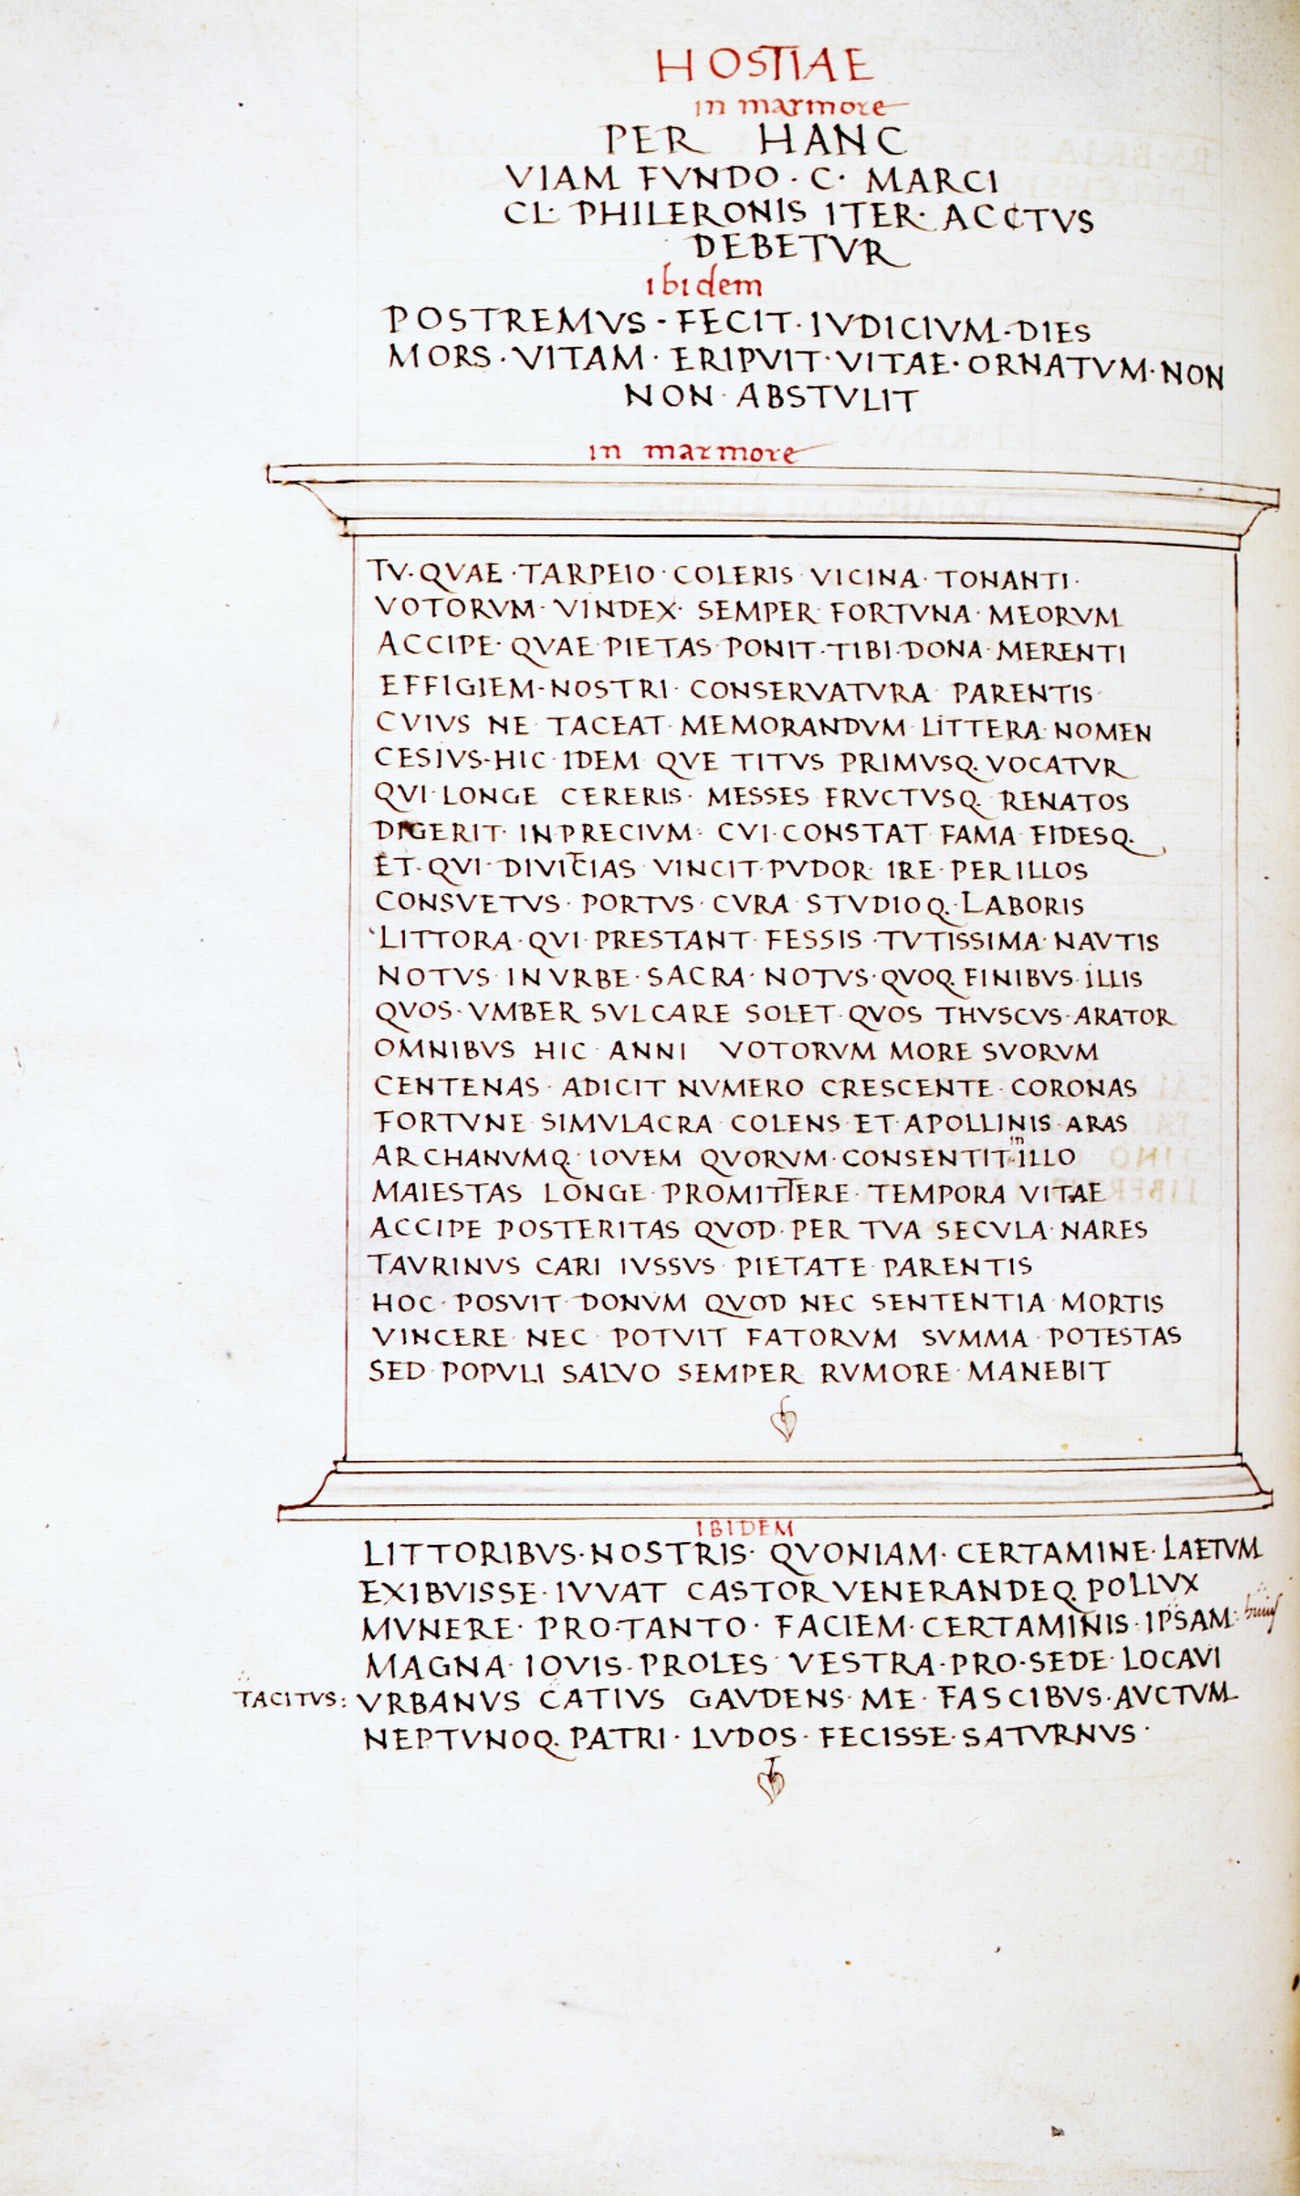 HOSTIAE
in marmore
PER HANC
VIAM FVNDO · C · MARCI
CL · PHILERONIS ITER · ACCTVS
DEBETVR
ibidem
POSTREMVS - FECIT · IVDICIVM · DIES
MORS · VITAM · ERIPVIT · VITAE · ORNATVM · NON
NON · ABSTVLIT
in marmore
TV · QVAE · TARPEIO · COLERIS · VICINA · TONANTI ·
VOTORVM · VINDEX · SEMPER FORTVNA · MEORVM
ACCIPE · QVAE PIETAS PONIT · TIBI · DONA · MERENTI
EFFIGIEM - NOSTRI · CONSERVATVRA PARENTIS
CVIVS NE TACEAT · MEMORANDVM LITTERA NOMEN
CESIVS - HIC · IDEM QVE TITVS PRIMVSQ. VOCATVR
QVI · LONGE CERERIS · MESSES FRVCTVSQ. RENATOS
DIGERIT · IN PRECIVM · CVI · CONSTAT FAMA FIDESQ.
ET · QVI · DIVITIAS VINCIT · PVDOR · IRE · PER ILLOS
CONSVETVS · PORTVS · CVRA STVDIO Q. LABORIS
LITTORA · QVI · PRESTANT · FESSIS · TVTISSIMA · NAVTIS
NOTVS · IN VRBE · SACRA · NOTVS · QVOQ. FINIBVS · ILLIS
QVOS · VMBER SVLCARE SOLET · QVOS THVSCVS · ARATOR
OMNIBVS HIC · ANNI VOTORVM MORE SVORVM
CENTENAS · ADICIT NVMERO CRESCENTE · CORONAS
FORTVNE SIMVLACRA COLENS · ET · APOLLINIS · ARAS
ARCHANVMQ. IOVEM QVORVM · CONSENTIT in ILLO
MAIESTAS LONGE · PROMITTERE · TEMPORA VITAE
ACCIPE POSTERITAS QVOD · PER TVA SECVLA · NARES
TAVRINVS CARI IVSSVS · PIETATE PARENTIS
HOC · POSVIT · DONVM QVOD NEC SENTENTIA · MORTIS
VINCERE NEC POTVIT FATORVM SVMMA POTESTAS
SED · POPVLI SALVO SEMPER RVMORE · MANEBIT
IBIDEM
LITTORIBVS · NOSTRIS · QVONIAM · CERTAMINE · LAETVM
EXIBVISSE · IVVAT CASTOR VENERANDEQ. POLLVX
MVNERE · PRO · TANTO · FACIEM · CERTAMINIS · IPSAM : huius
MAGNA · IOVIS · PROLES VESTRA · PRO · SEDE · LOCAVI
TACITVS : VRBANVS CATIVS GAVDENS · ME · FASCIBVS · AVCTVM
NEPTVNOQ. PATRI · LVDOS · FECISSE · SATVRNVS ·